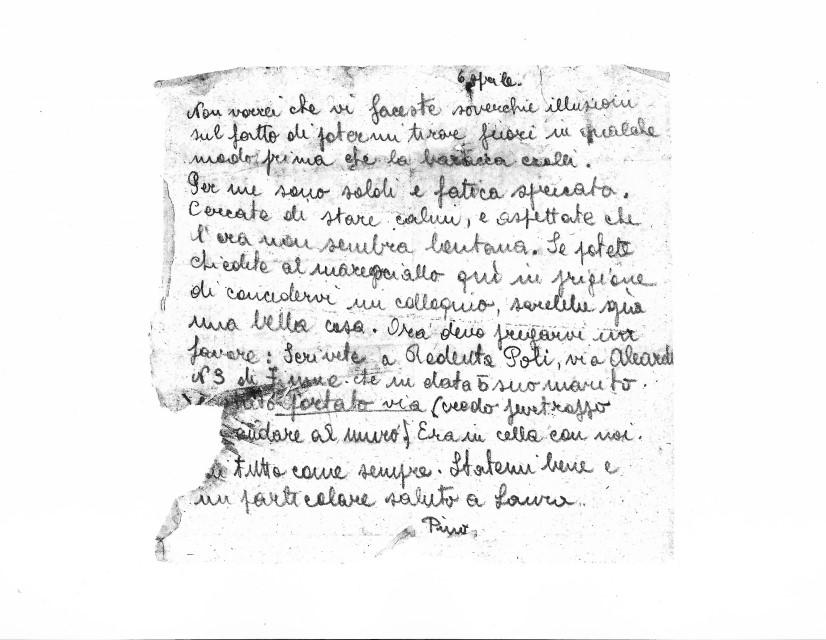 6 aprile.
Non vorrei che vi faceste soverchie illusioni
sul fatto di potermi tirar fuori in qualche
modo prima che la baracca crolli.
Per me sono soldi e fatica sprecata.
Cercate di stare calmi, e aspettate che
l'ora non sembra lontana. Se potete
chiedete al maresciallo quì in prigione
di concedervi un colloquio, sarebbe già
una bella cosa. Ora devo pregarvi un
favore: Scrivete a Redenta Poli, via Aleardi
N 3 di che in data 5 suo marito
portato via (credo purtroppo
andare al muro) Era in cella con noi.
tutto come sempre. Statemi bene e
un particolare saluto a Laura.
Pino.